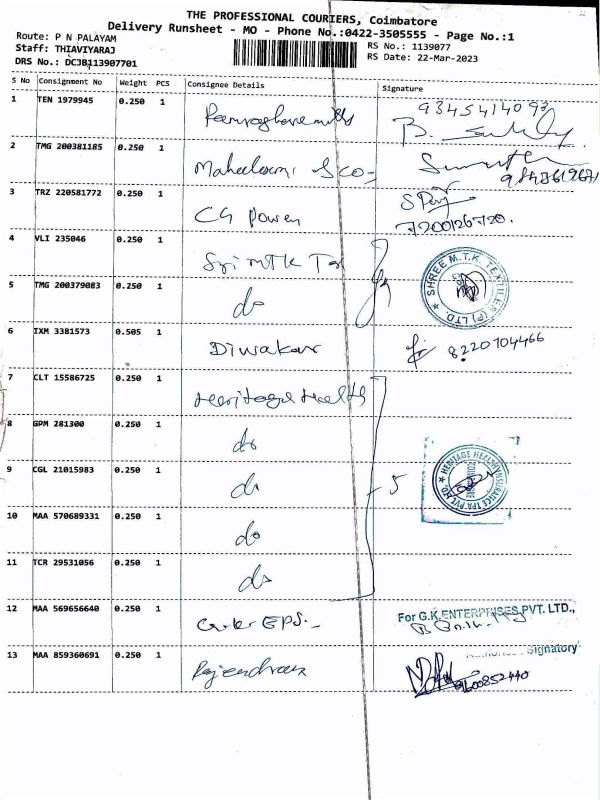 THE PROFESSIONAL COURIERS, Coimbatore
Delivery Runsheet - MO - Phone No.:0422-3505555 - Page No.:1
Route: P N PALAYAM
Staff: THIAVIYARAJ
DRS No.: DCJB113907701
RS No.: 1139077
RS Date: 22-Mar-2023
S No Consignment No Weight PCS Consignee Details Signature
1 TEN 1979945 0.250 1
2 TMG 200381185 0.250 1
3 TRZ 220581772 0.250 1 CG Power 7200126720.
4 VLI 235046 0.250 1 Sri MTK Tex SHREE M.T.K. TEXTILES (P) LTD.
5 TMG 200379083 0.250 1 do
6 IXM 3381573 0.505 1 Diwakar 8220704466
7 CLT 15586725 0.250 1 Heritage Health
8 GPM 281300 0.250 1 do
9 CGL 21015983 0.250 1 do 5 HERITAGE HEALTH INSURANCE TPA PVT LTD.
10 MAA 570689331 0.250 1 do
11 TCR 29531056 0.250 1 do
12 MAA 569656640 0.250 1 For G.K.ENTERPRISES PVT. LTD.,
Signatory
13 MAA 859360691 0.250 1 Rajendran 9600852440